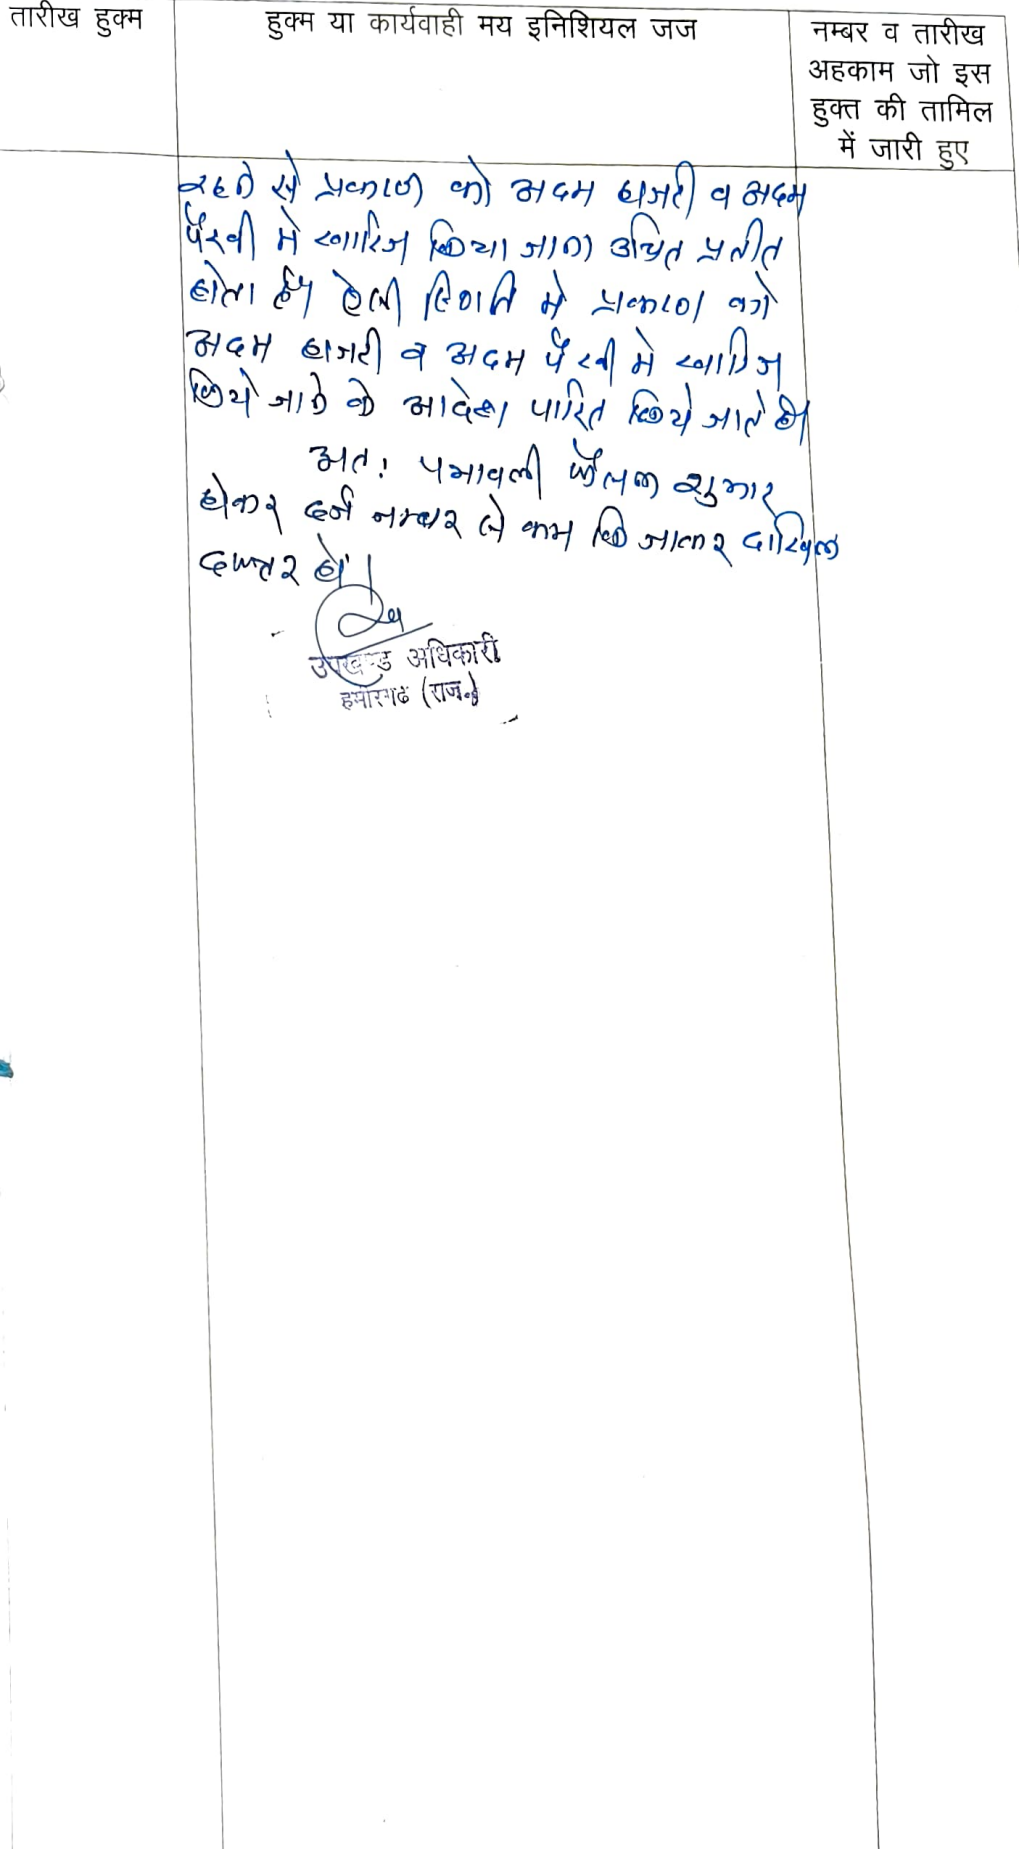 तारीख हुक्म
हुक्म या कार्यवाही मय इनिशियल जज
नम्बर व तारीख
अहकाम जो इस
हुक्त की तामिल
में जारी हुए
रहने से प्रकरण को अदम हाजरी व अदम
पैरवी मे खारिज किया जाना उचित प्रतीत
होता है। ऐसी स्थिति मे प्रकरण को
अदम हाजरी व अदम पैरवी मे खारिज
किये जाने के आदेश पारित किये जाते है।
अत: पत्रावली फैसल शुमार
होकर दर्ज नम्बर से कम कि जाकर दाखिल
दफ्तर हो।
उपखण्ड अधिकारी
हमीरगढ (राज.)